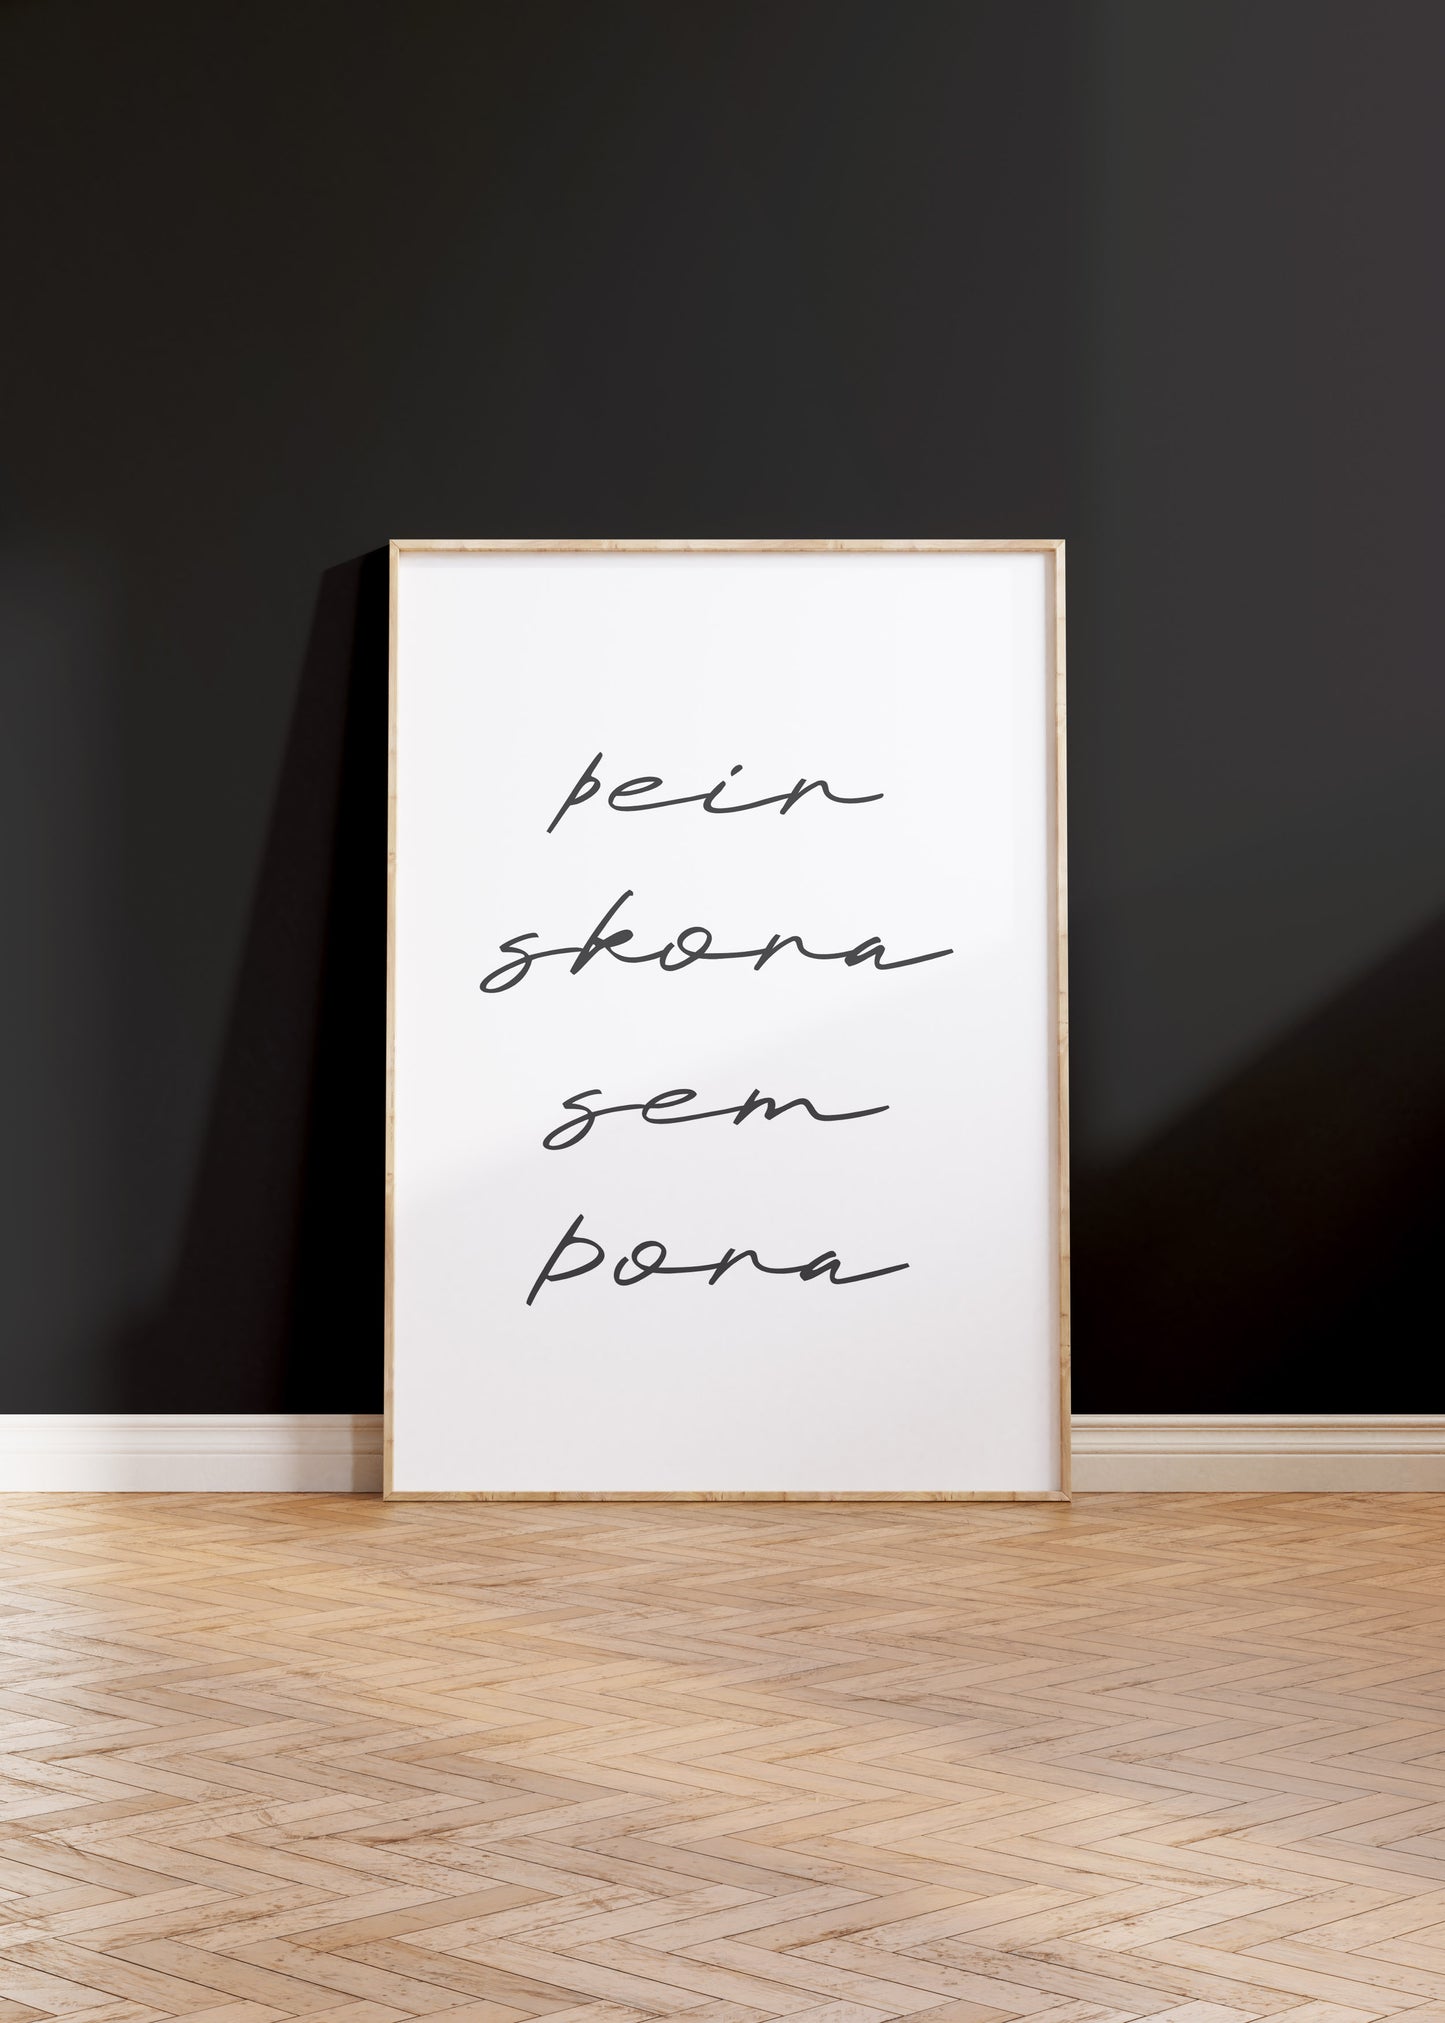 þeir
skora
sem
þora